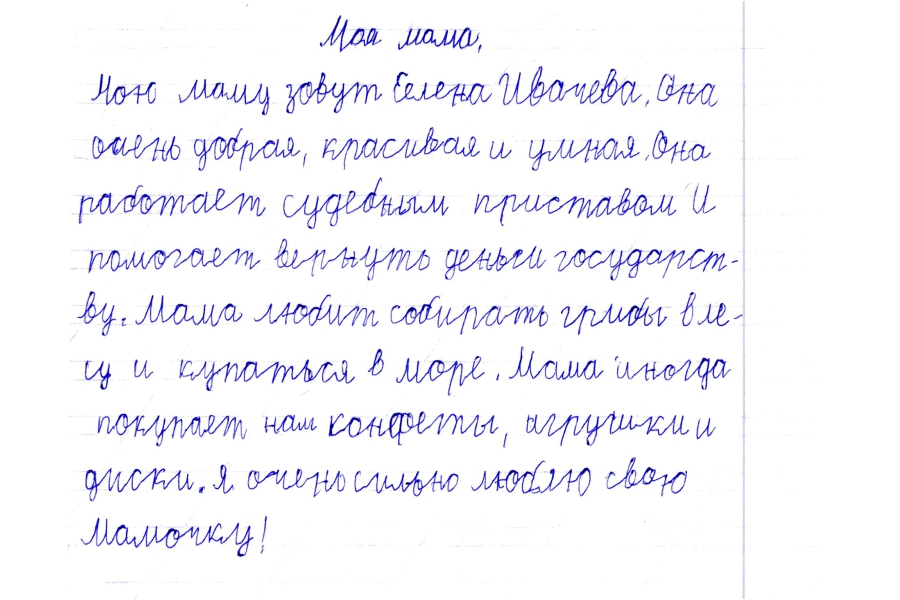 Моя мама.
Мою маму зовут Елена Ивачева. Она
очень добрая, красивая и умная. Она
работает судебным приставом И
помогает вернуть деньги государст-
ву. Мама любит собирать грибы в ле-
су и купаться в море. Мама иногда
покупает нам конфеты, игрушки и
диски. Я очень сильно люблю свою
Мамочку!